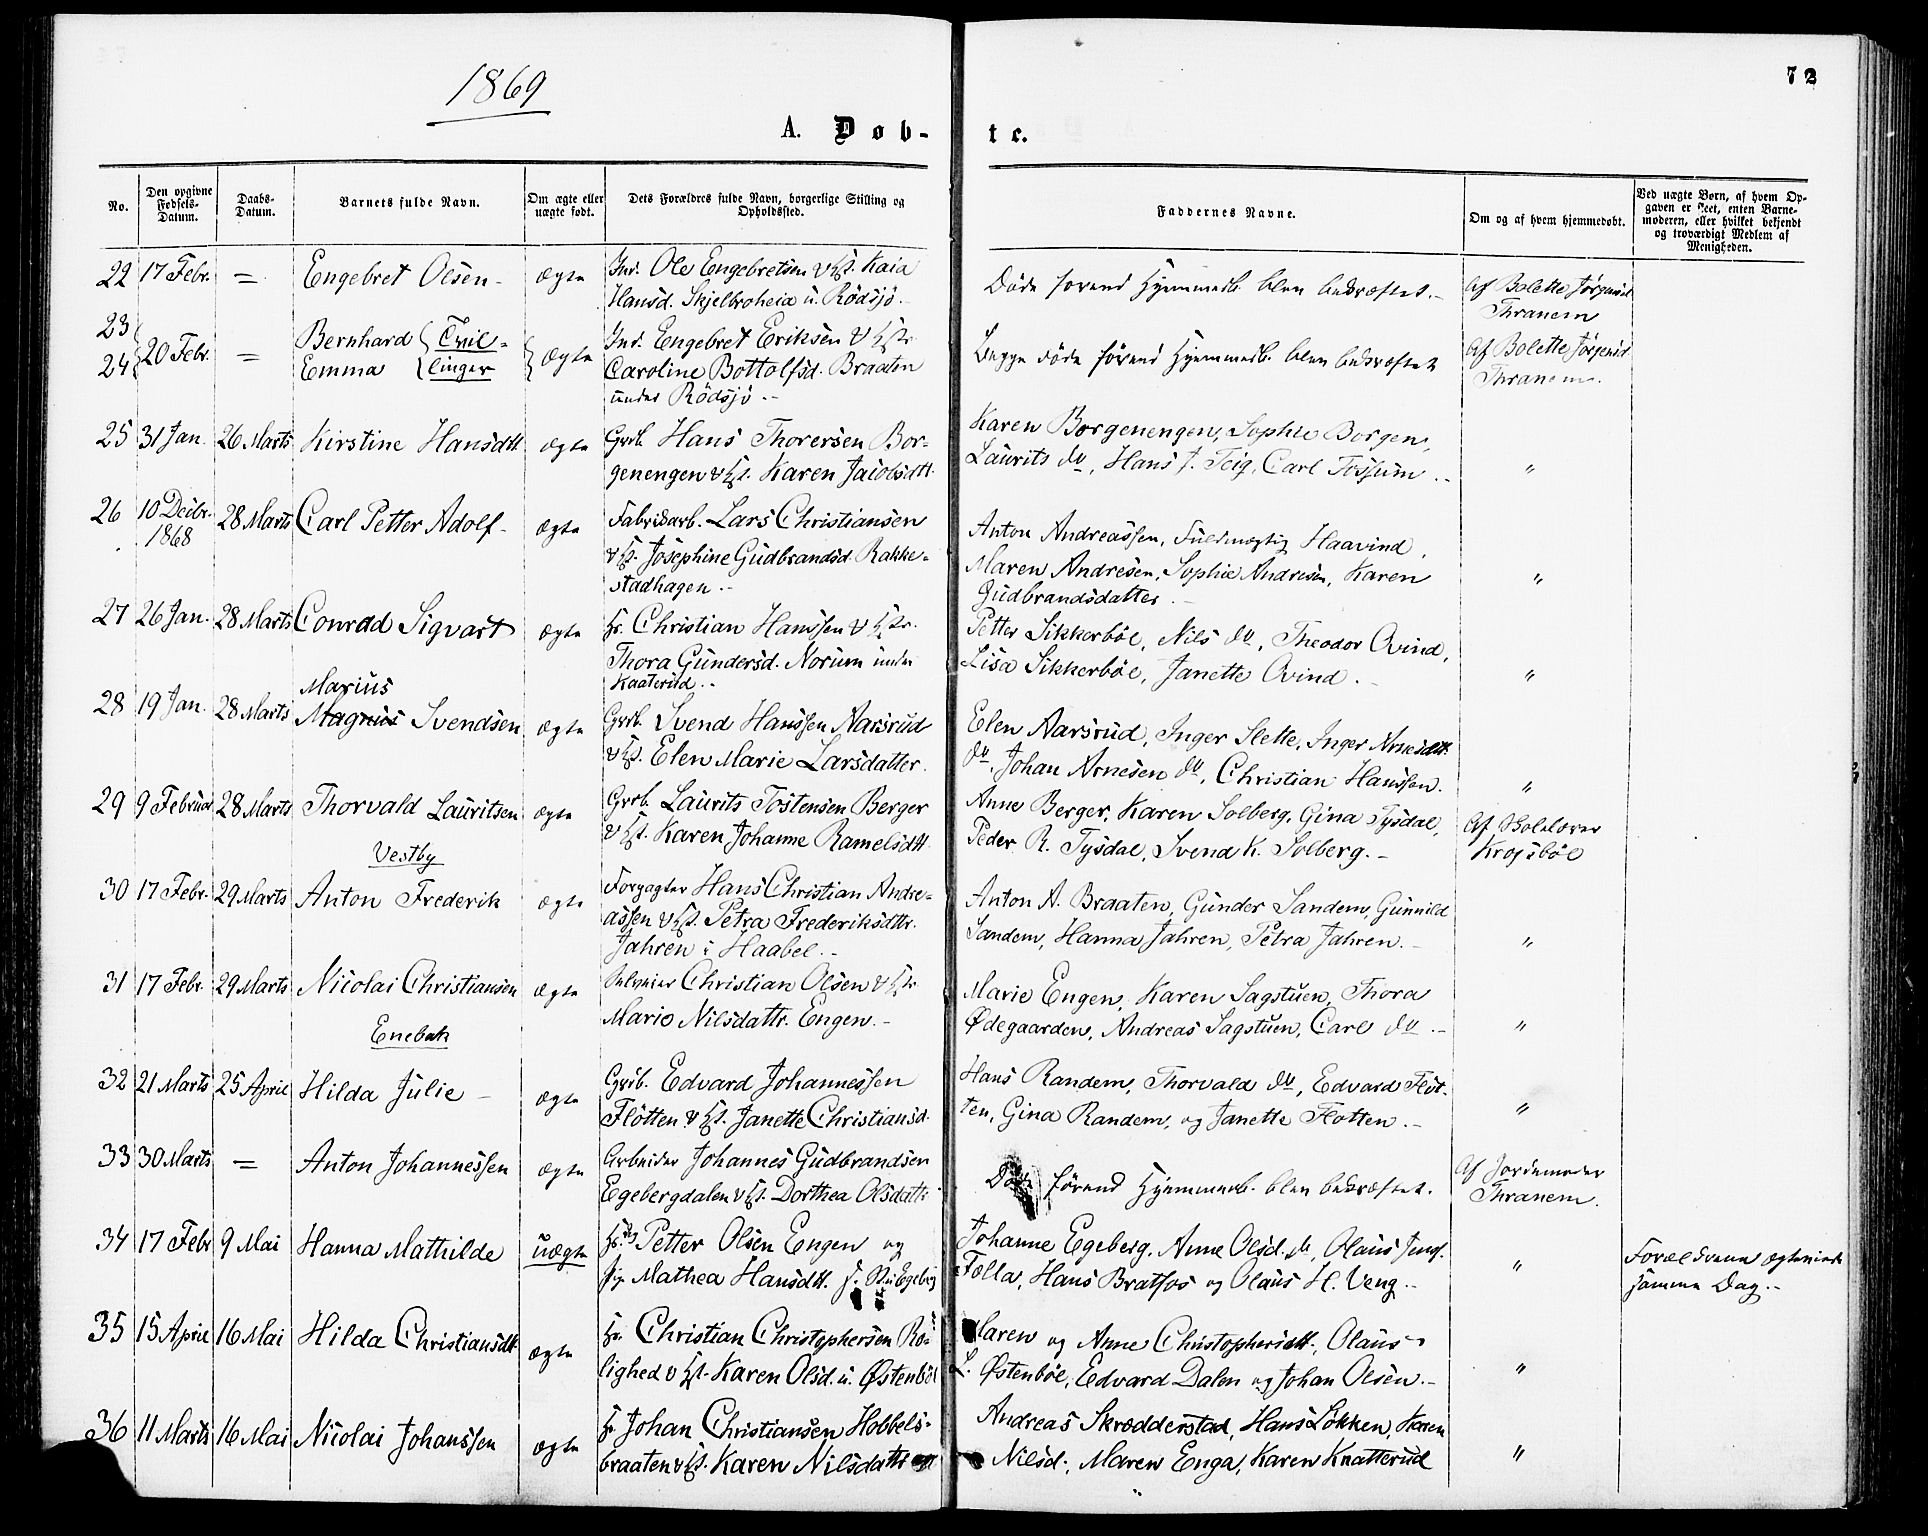 1869
72
A. Døb-
te.
No.
Den opgivne Fødsels-Datum.
Daabs-Datum.
Barnets fulde Navn.
Om ægte eller uægte født.
Dets Forældres fulde Navn, borgerlige Stilling og Opholdssted.
Faddernes Navne.
Om og af hvem hjemmedøbt.
Ved uægte Børn, af hvem Op-
gaven er skeet, enten Barne-
moderen, eller hvilket bekjendt
og troværdigt Medlem af
Menigheden.
22 17 Febr. = Engebret Olsen - ægte Ind. Ole Engebretsen & Hst. Kaia
Hansd. Skjelbroheia u. Rødsjø.
Døde forend Hjemmedb. blev bekræftet.- Af Bolette Jørgensd
Thranem
23
24 20 Febr. = Bernhard Emma Tvil-
linger ægte Ind. Engebret Eriksen & Hstr
Caroline Bottolfsd. Braaten
under Rödsjö.-
Begge døde førend Hjemmedb. blev bekræftet Af Bolette Jørgensd
Thranem.
25 31 Jan. 26 Marts Kirstine Hansdtt. ægte Grb. Hans Thorersen Bor-
genengen & Hst. Karen Jacobsdtt.
Karen Borgenengen, Sophie Borgen,
Laurits do, Hans J. Teig, Carl Fossum.. "
26 10 Decbr. 1868 28 Marts Carl Petter Adolf- ægte Fabrikarb. Lars Christiansen
& Hst. Josephine Gudbrandsd. Rakke-
stadhagen.-
Anton Andreassen, Fuldmægtig Haavind,
Maren Andresen, Sophie Andresen, Karen
Gudbrandsdatter.- "
27 26 Jan. 28 Marts Conrad Sigvart ægte Hr. Christian Hanssen & Hstr.
Thora Gundersd. Norum under
Kaaterud.-
Petter Sikkerbøl, Nils do, Theodor Ovind,
Lisa Sikkerbøl, Janette Ovind.- "
28 19 Jan. 28 Marts Marius
Magnus Svendsen ægte Grb. Svend Hanssen Aarsrud
& Hst. Elen Marie Larsdatter.
Elen Aarsrud, Inger Slette, Inger Arnesdtt.
do, Johan Arnesen do, Christian Hanssen. "
29 9 Februar 28 Marts Thorvald Lauritsen ægte Grb. Laurits Tostensen Berger
& Hst. Karen Johanne Ramelsdtt.
Vestby
Anne Berger, Karen Solberg, Gina Tysdal,
Peder R. Tysdal, Svend K. Solberg.- Af Skolelærer
Krogsbøl
30 17 Febr. 29 Marts Anton Frederik ægte Forpagter Hans Christian Andre-
assen & Hst. Petra Frederiksdttr.
Jahren i Haabel.-
Anton A. Braaten, Gunder Sandem, Gunnild
Sandem, Hanna Jahren, Petra Jahren.- "
31 17 Febr. 29 Marts Nicolai Christiansen ægte Selveier Christian Olsen & Hstr
Marie Nilsdattr. Engen.-
Enebak
Marie Engen, Karen Sagstuen, Thora
Ødegaarden, Andreas Sagstuen, Carl do.- "
32 21 Marts 25 April Hilda Julie - ægte Grb. Edvard Johannessen
Flötten & Hst. Janette Christiansd.
Hans Randem, Thorvald do, Edvard Fløt-
ten, Gina Randem, og Janette Flotten.- "
33 30 Marts = Anton Johannessen ægte Arbeider Johannes Gudbrandsen
Egebergdalen & Hst. Dorthea Olsdattr
Døde førend Hjemmedb. blev bekræftet. Af Jordemoder
Thranem.
34 17 Febr 9 Mai Hanna Mathilde uægte Petter Olsen Engen og
Pig. Mathea Hansdtt. Egeberg
Johanne Egeberg, Anne Olsd. do, Olaus
Folla, Hans Bratfos og Olaus H. Veng.- " Forældrene ægteviede
samme Dag.-
35 15 April 16 Mai Hilda Christiansdtt. ægte Hr. Christian Christophersen Ro-
lighed & Hst. Karen Olsd. u. Østenbøl
Maren og Anne Christophersdtt., Olaus
L. Østenbøl, Edvard Dalen og Johan Olsen.- "
36 11 Marts 16 Mai Nicolai Johanssen ægte Hr Johan Christiansen Hobbels-
braaten & Hst. Karen Nilsdattr
Andreas Skrædderstad, Hans Løkken, Karen
Nilsd., Maren Enga, Karen Knatterud "